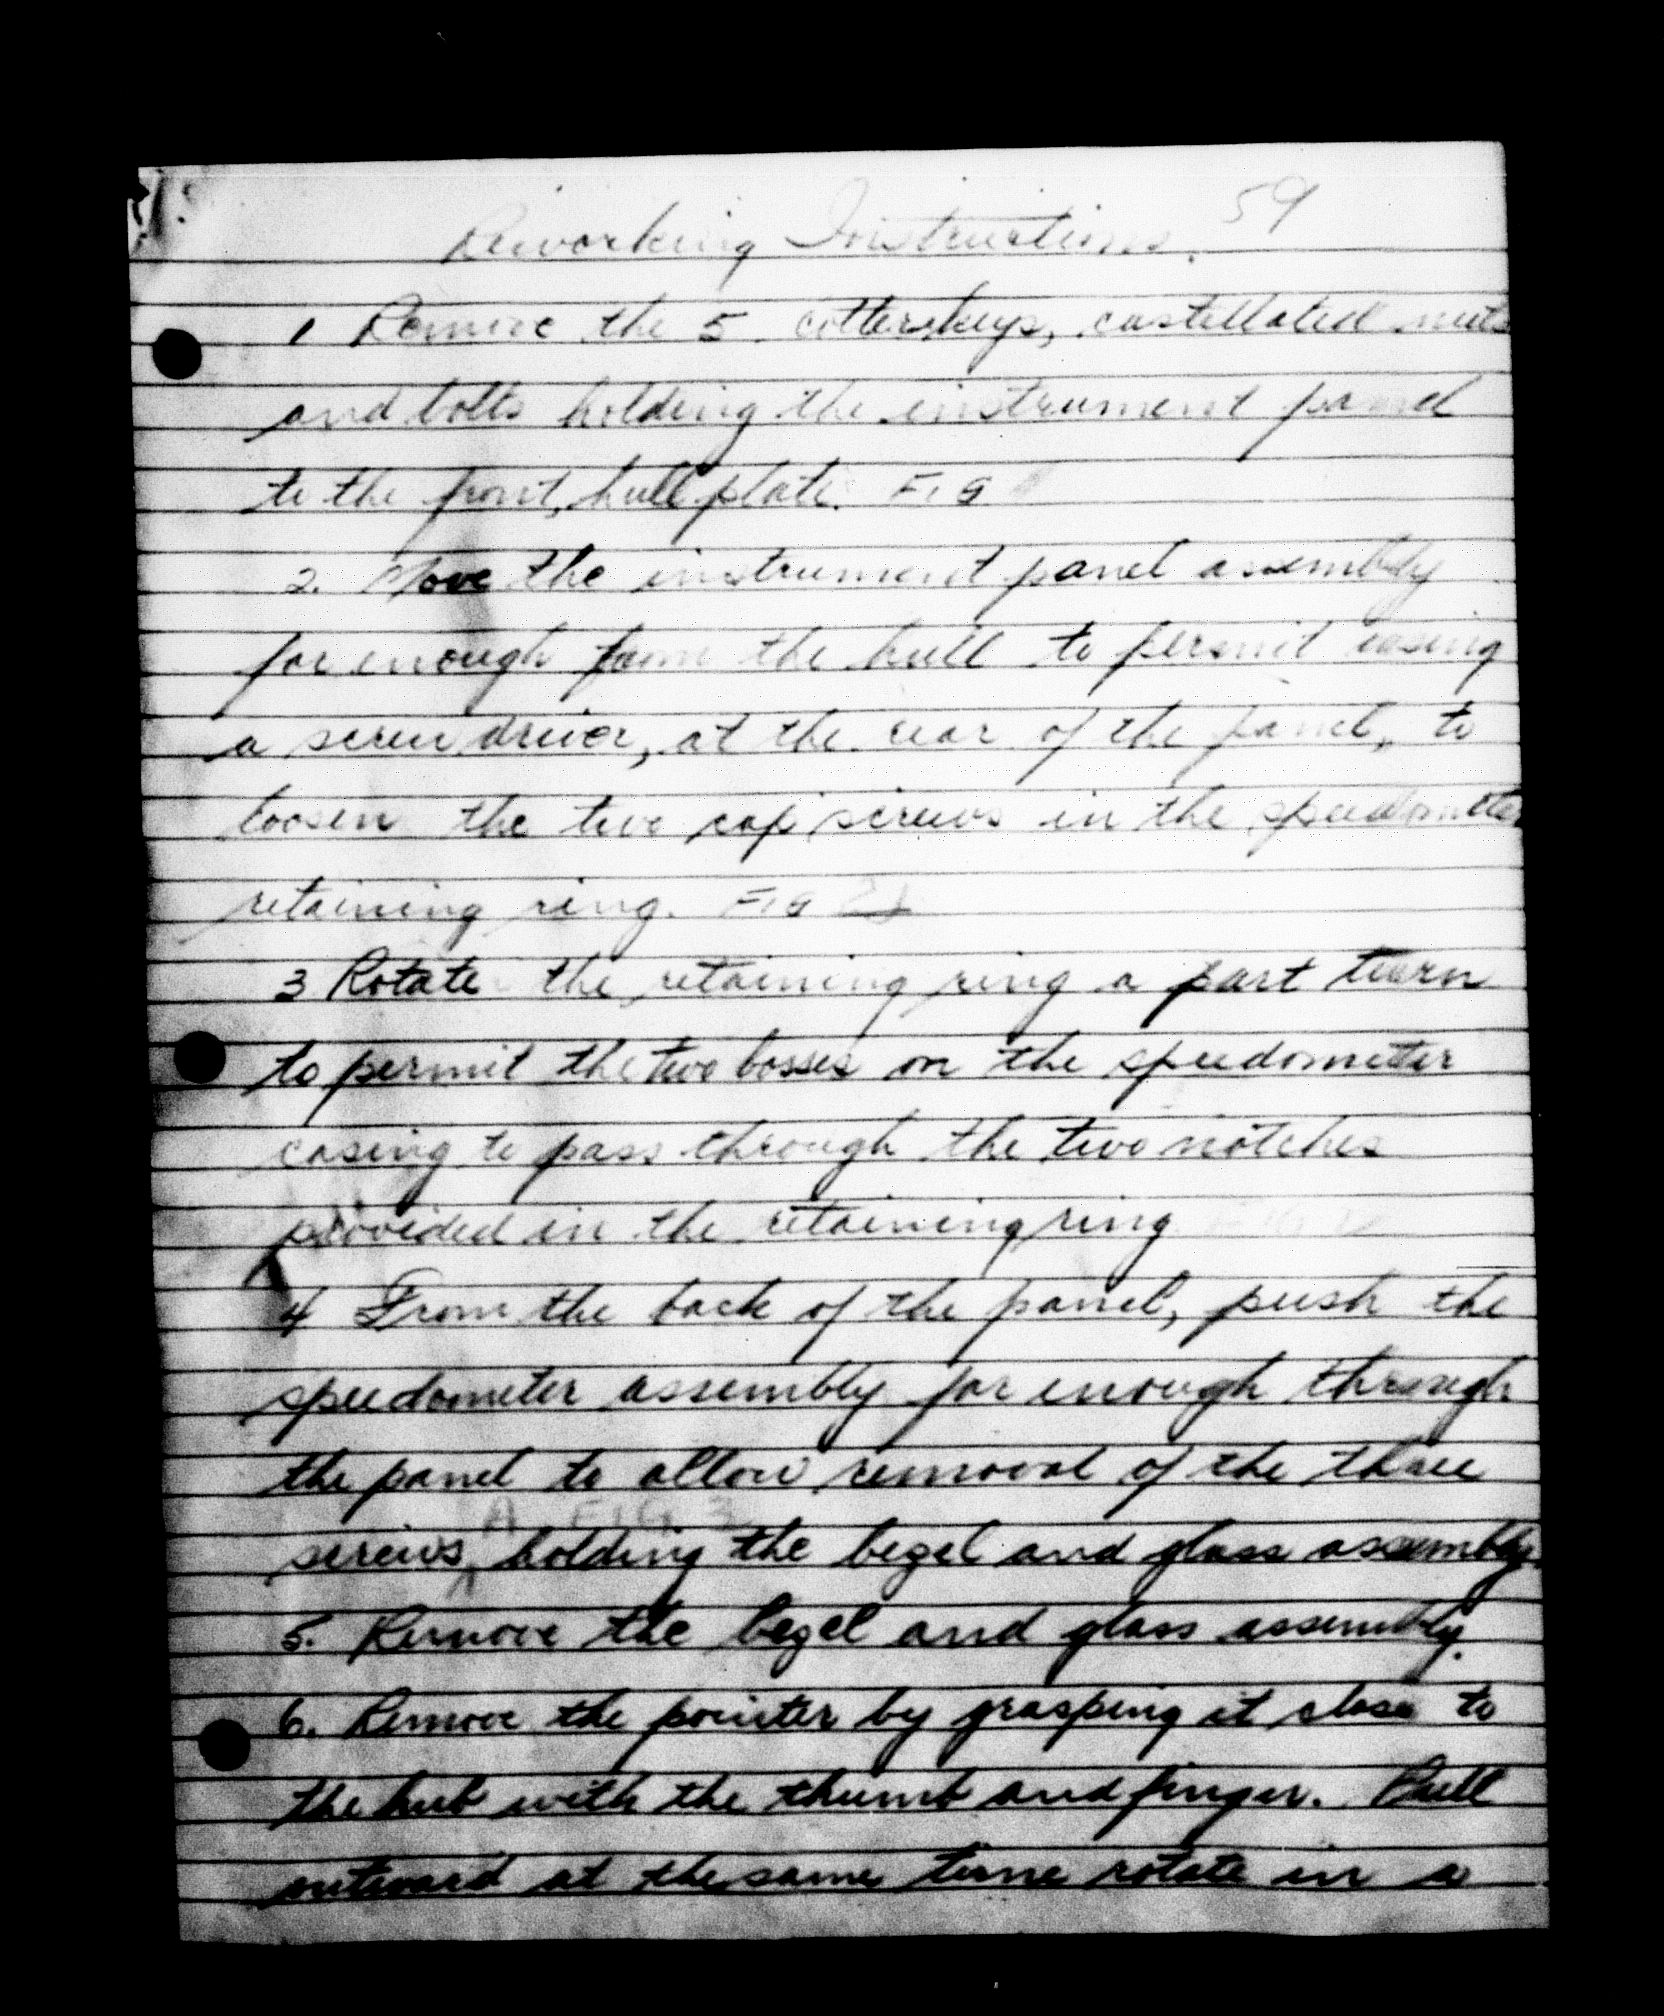 59
Reworking Instructions.
1 Remove the 5 cotterkeys, castellated nuts
and bolts holding the instrument panel
to the front, hull plate. FIG
2. Move the instrument panel assembly
far enough from the hull to permit using
a screw driver, at the rear of the panel, to
loosen the two cap screws in the speedometer
retaining ring. FIG 2
3 Rotate the retaining ring a part turn
to permit the two bosses on the speedometer
casing to pass through the two notches
provided in the retaining ring
4 From the back of the panel, push the
speedometer assembly far enough through
the panel to allow removal of the three
A FIG 3
screws, holding the bezel and glass assembly.
5. Remove the bezel and glass assembly.
6. Remove the pointer by grasping it close to
the hub with the thumb and finger. Pull
outward at the same time rotate in a